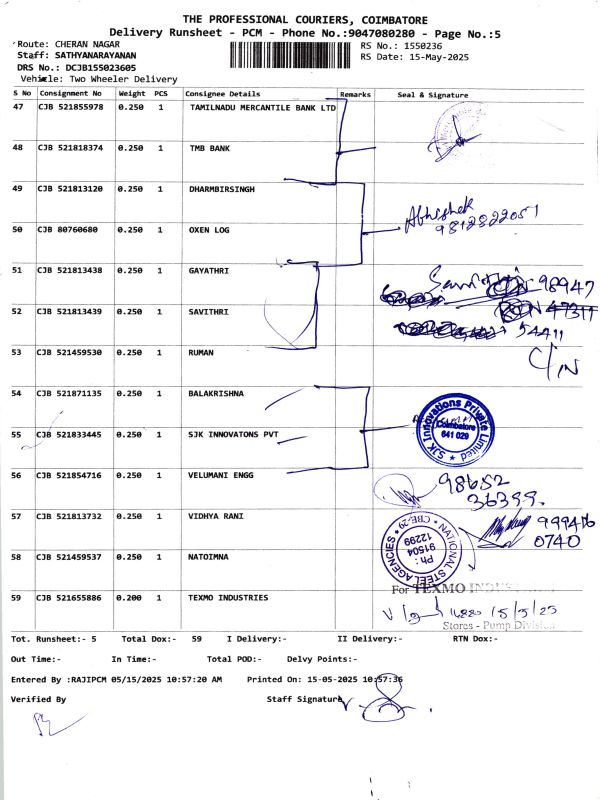 THE PROFESSIONAL COURIERS, COIMBATORE
Delivery Runsheet - PCM - Phone No.:9047080280 - Page No.:5
Route: CHERAN NAGAR RS No.: 1550236
Staff: SATHYANARAYANAN RS Date: 15-May-2025
DRS No.: DCJB155023605
Vehicle: Two Wheeler Delivery
S No Consignment No Weight PCS Consignee Details Remarks Seal & Signature
47 CJB 521855978 0.250 1 TAMILNADU MERCANTILE BANK LTD
48 CJB 521818374 0.250 1 TMB BANK
49 CJB 521813120 0.250 1 DHARMBIRSINGH
Abhishek
9812822051
50 CJB 80760680 0.250 1 OXEN LOG
51 CJB 521813438 0.250 1 GAYATHRI
98947
52 CJB 521813439 0.250 1 SAVITHRI
47311
54411
53 CJB 521459530 0.250 1 RUMAN
C/N
54 CJB 521871135 0.250 1 BALAKRISHNA
SJK Innovations Private Limited
Coimbatore
641 029
55 CJB 521833445 0.250 1 SJK INNOVATONS PVT
56 CJB 521854716 0.250 1 VELUMANI ENGG
98652
36399.
57 CJB 521813732 0.250 1 VIDHYA RANI
NATIONAL STEEL AGENCIES
CBE-29
Ph:
91504
12299
99416
0740
58 CJB 521459537 0.250 1 NATOIMNA
For TEXMO INDUSTRIES
59 CJB 521655886 0.200 1 TEXMO INDUSTRIES
15/5/25
Stores - Pump Division
Tot. Runsheet:- 5 Total Dox:- 59 I Delivery:- II Delivery:- RTN Dox:-
Out Time:- In Time:- Total POD:- Delvy Points:-
Entered By :RAJIPCM 05/15/2025 10:57:20 AM Printed On: 15-05-2025 10:57:36
Verified By Staff Signature